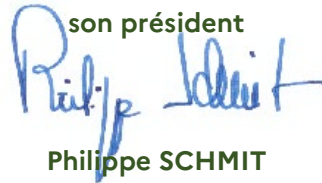 son président
Philippe Schmit
Philippe SCHMIT